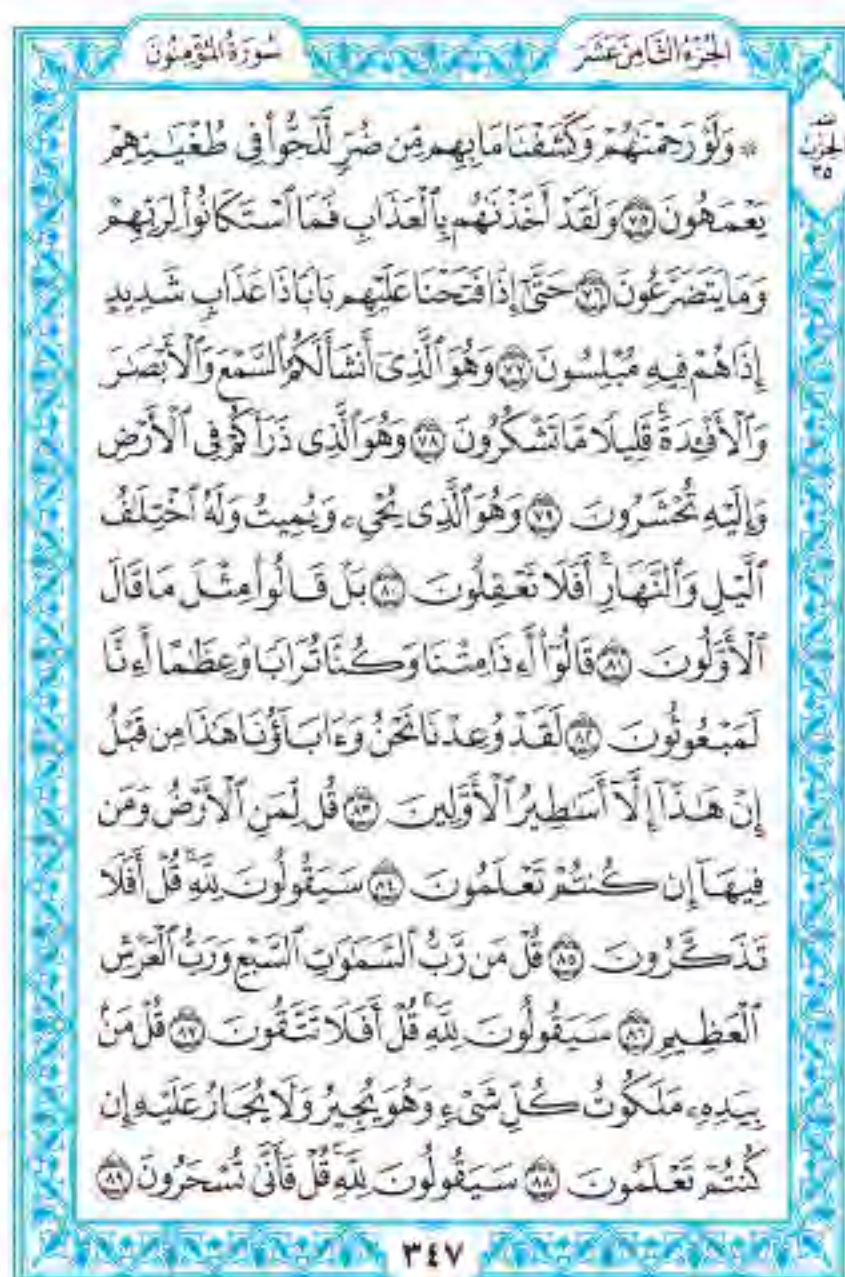 سُورَةُ المُؤْمِنُونَ
الجُزْءُ الثَّامِنَ عَشَرَ
نصف
الحِزْب
٣٥
۞ وَلَوْ رَحِمْنَٰهُمْ وَكَشَفْنَا مَا بِهِم مِّن ضُرٍّ لَّلَجُّوا۟ فِى طُغْيَٰنِهِمْ
يَعْمَهُونَ ٧٥ وَلَقَدْ أَخَذْنَٰهُم بِٱلْعَذَابِ فَمَا ٱسْتَكَانُوا۟ لِرَبِّهِمْ
وَمَا يَتَضَرَّعُونَ ٧٦ حَتَّىٰٓ إِذَا فَتَحْنَا عَلَيْهِم بَابًا ذَا عَذَابٍ شَدِيدٍ
إِذَا هُمْ فِيهِ مُبْلِسُونَ ٧٧ وَهُوَ ٱلَّذِىٓ أَنشَأَ لَكُمُ ٱلسَّمْعَ وَٱلْأَبْصَٰرَ
وَٱلْأَفْـِٔدَةَ ۚ قَلِيلًا مَّا تَشْكُرُونَ ٧٨ وَهُوَ ٱلَّذِى ذَرَأَكُمْ فِى ٱلْأَرْضِ
وَإِلَيْهِ تُحْشَرُونَ ٧٩ وَهُوَ ٱلَّذِى يُحْىِۦ وَيُمِيتُ وَلَهُ ٱخْتِلَٰفُ
ٱلَّيْلِ وَٱلنَّهَارِ ۚ أَفَلَا تَعْقِلُونَ ٨٠ بَلْ قَالُوا۟ مِثْلَ مَا قَالَ
ٱلْأَوَّلُونَ ٨١ قَالُوٓا۟ أَءِذَا مِتْنَا وَكُنَّا تُرَابًا وَعِظَٰمًا أَءِنَّا
لَمَبْعُوثُونَ ٨٢ لَقَدْ وُعِدْنَا نَحْنُ وَءَابَآؤُنَا هَٰذَا مِن قَبْلُ
إِنْ هَٰذَآ إِلَّآ أَسَٰطِيرُ ٱلْأَوَّلِينَ ٨٣ قُل لِّمَنِ ٱلْأَرْضُ وَمَن
فِيهَآ إِن كُنتُمْ تَعْلَمُونَ ٨٤ سَيَقُولُونَ لِلَّهِ ۚ قُلْ أَفَلَا
تَذَكَّرُونَ ٨٥ قُلْ مَن رَّبُّ ٱلسَّمَٰوَٰتِ ٱلسَّبْعِ وَرَبُّ ٱلْعَرْشِ
ٱلْعَظِيمِ ٨٦ سَيَقُولُونَ لِلَّهِ ۚ قُلْ أَفَلَا تَتَّقُونَ ٨٧ قُلْ مَنۢ
بِيَدِهِۦ مَلَكُوتُ كُلِّ شَىْءٍ وَهُوَ يُجِيرُ وَلَا يُجَارُ عَلَيْهِ إِن
كُنتُمْ تَعْلَمُونَ ٨٨ سَيَقُولُونَ لِلَّهِ ۚ قُلْ فَأَنَّىٰ تُسْحَرُونَ ٨٩
٣٤٧